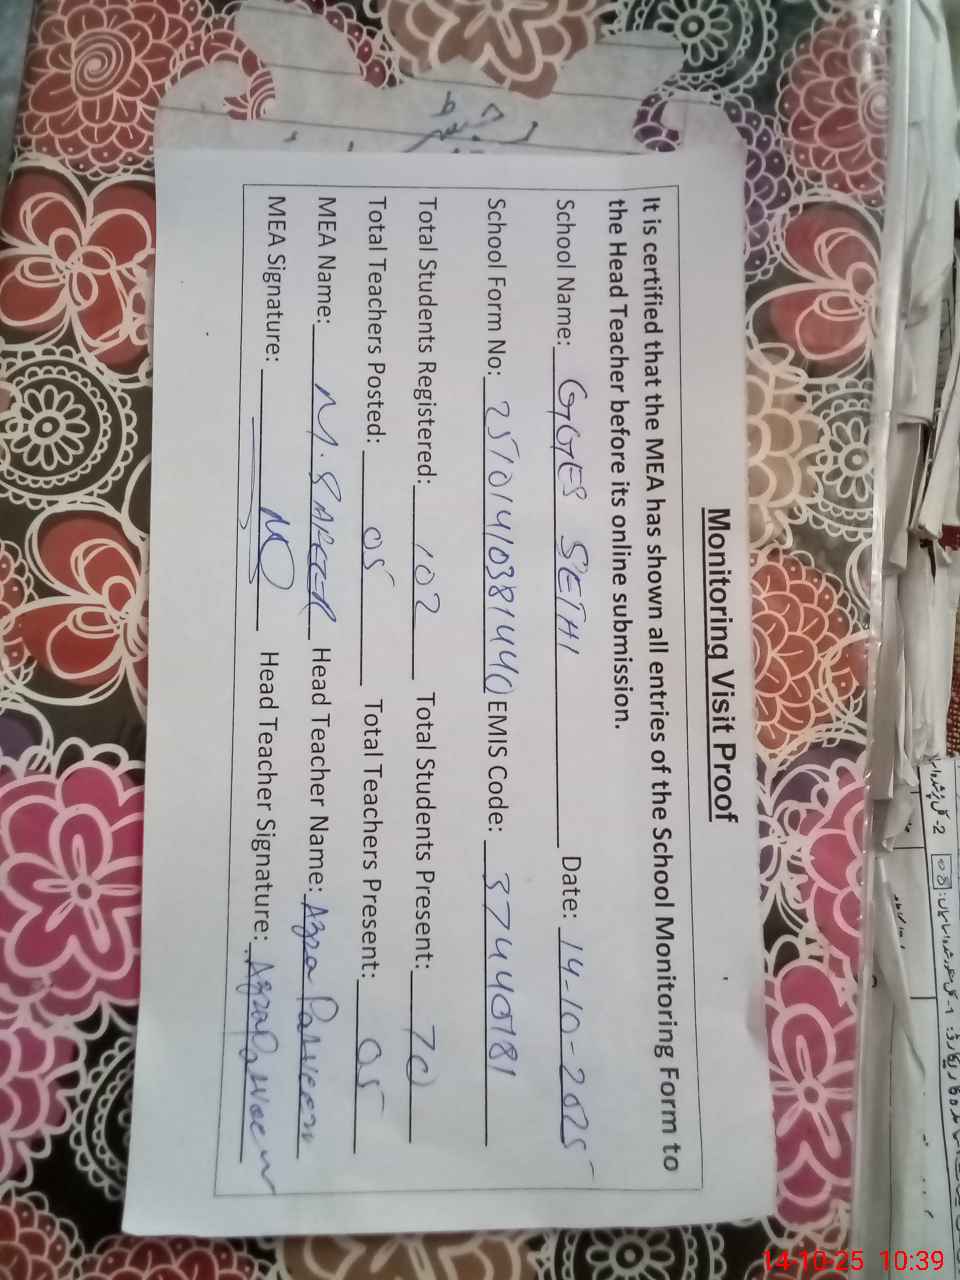 Monitoring Visit Proof
It is certified that the MEA has shown all entries of the School Monitoring Form to
the Head Teacher before its online submission.
School Name: GGES SETHI Date: 14-10-2025
School Form No: 2510141038 1440 EMIS Code: 37440781
Total Students Registered: 102 Total Students Present: 70
Total Teachers Posted: 05 Total Teachers Present: 05
MEA Name: M. SAFEER Head Teacher Name: Azra Parveen
MEA Signature: Head Teacher Signature: Azra Parveen
14-10-25 10:39